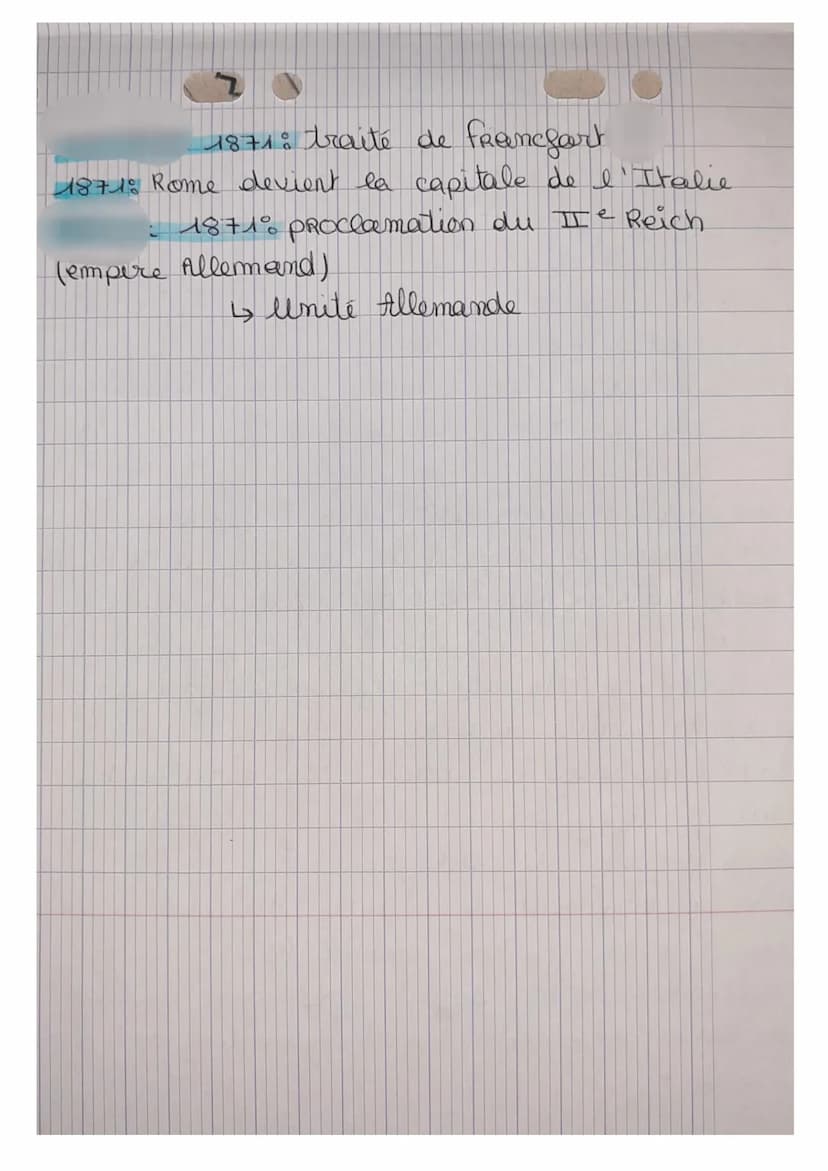 1871: traité de francfort
1871: Rome devient la capitale de l'Italie
: 1871: proclamation du IIe Reich
(empire Allemand)
↳ Unité Allemande